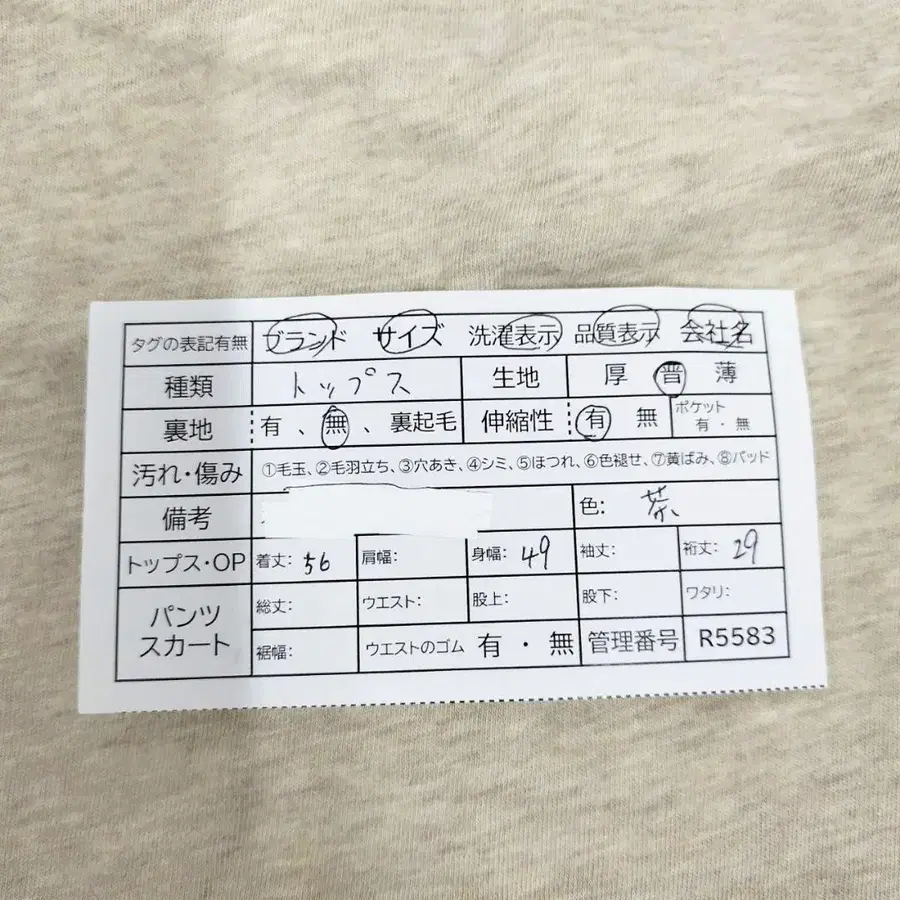 タグの表記有無 ブランド サイズ 洗濯表示 品質表示 会社名
種類 トップス 生地 厚 普 薄
裏地 有 、 無 、 裏起毛 伸縮性 有 無 ポケット 有 ・ 無
汚れ・傷み ①毛玉、②毛羽立ち、③穴あき、④シミ、⑤ほつれ、⑥色褪せ、⑦黄ばみ、⑧パッド
備考 色: 茶
トップス・OP 着丈: 56 肩幅: 身幅: 49 袖丈: 裄丈: 29
パンツ スカート 総丈: ウエスト: 股上: 股下: ワタリ:
裾幅: ウエストのゴム 有 ・ 無 管理番号 R5583